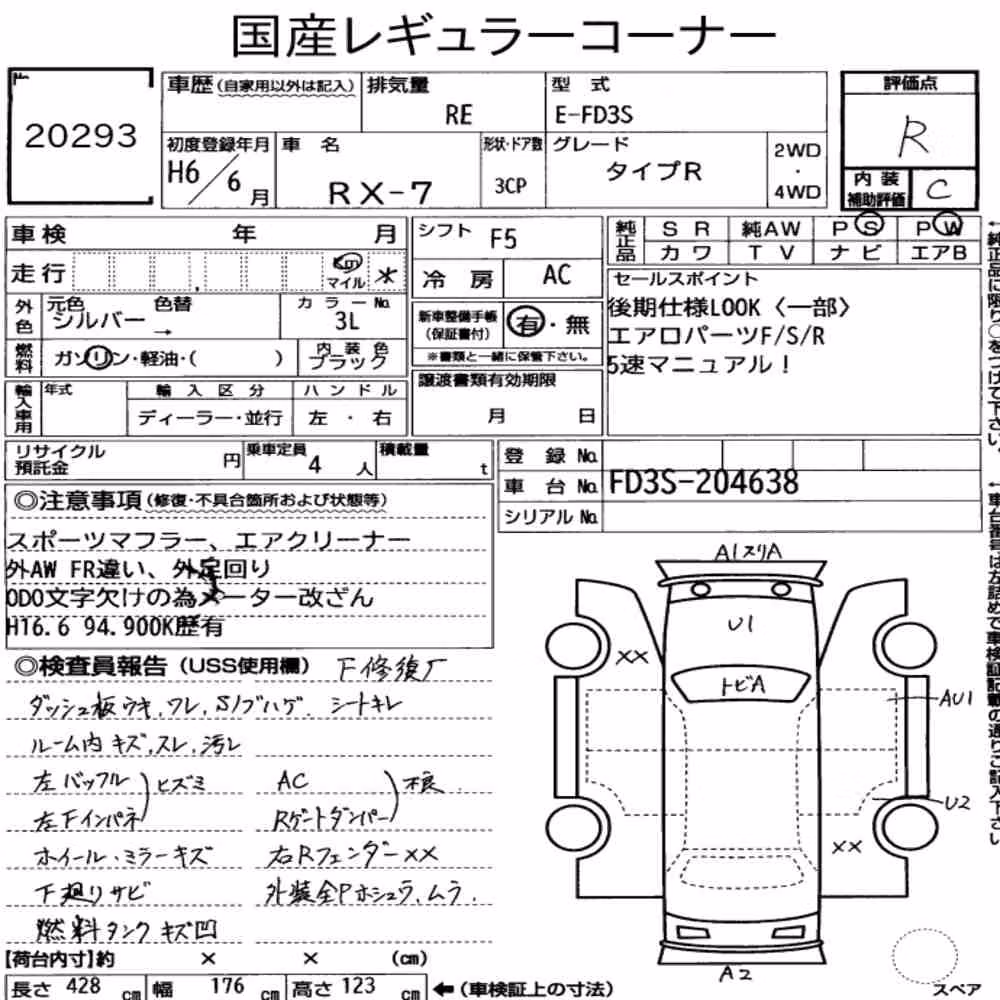 国産レギュラーコーナー
20293
車歴(自家用以外は記入)
排気量
RE
型 式
E-FD3S
評価点
R
初度登録年月
H6/6月
車 名
RX-7
形状・ドア数
3CP
グレード
タイプR
2WD
・
4WD
内装
補助評価
C
車検 年 月
シフト F5
純正品
SR 純AW PS PW
カワ TV ナビ エアB
走行 , マイル *
冷房 AC
セールスポイント
後期仕様LOOK〈一部〉
エアロパーツF/S/R
5速マニュアル!
外色
元色 色替
シルバー →
カラーNo.
3L
新車整備手帳
(保証書付)
有・無
※書類と一緒に保管下さい。
燃料
ガソリン・軽油・( )
内装色
ブラック
譲渡書類有効期限
月 日
輸入車用
年式
輸入区分
ディーラー・並行
ハンドル
左・右
リサイクル
預託金
円
乗車定員
4人
積載量
t
登録No.
車台No. FD3S-204638
シリアルNo.
◎注意事項(修復・不具合箇所および状態等)
スポーツマフラー、エアクリーナー
外AW FR違い、外足回り
ODO文字欠けの為メーター改ざん
H16.6 94.900K歴有
◎検査員報告(USS使用欄) F修復ｱ
ダッシュ板ウキ,ワレ,S/ブハゲ、シートキレ
ルーム内キズ,スレ,汚レ
左バッフル
左Fインパネ
ヒズミ
AC
Rゲートダンパー
不良
ホイール・ミラーキズ
右Rフェンダー××
下廻りサビ
外装全Pホシュウ,ムラ.
燃料タンクキズ凹
【荷台内寸】約 × × (cm)
長さ 428 cm 幅 176 cm 高さ 123 cm ←(車検証上の寸法)
A1スリA
U1
××
トビA
AU1
U2
××
A2
スペア
←純正品に限り○をつけて下さい。
←車台番号は左詰めで車検証記載の通りご記入下さい